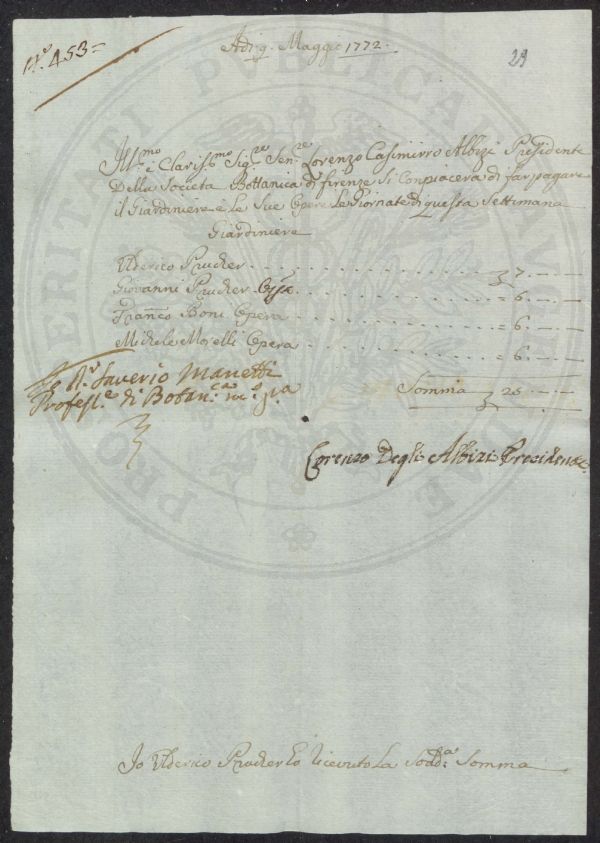 N.º 453=
Adi 9. Maggio 1772.
29
Ill.mo e Clariss.mo Sig.re Sen.re Lorenzo Casimirro Albizi Presidente
Della Societa Bottanica di firenze Si Conpiacera di far pagare
il Giardiniere e Le Sue Opere Le Giornate di questa Settimana
Giardiniere
Ulderico Prucker . . . . . . . . . . . . 7. — —
Giovanni Prucker . . . . . . . . . . = 6. — —
Franco Boni Opera . . . . . . . . . . = 6. — —
Michele Morelli Opera . . . . . . . . . . = 6. — —
Somma 25 — —
Saverio Manetti
Profess.e di Botan.ca
Lorenzo Degli Albizi Presidente
Io Ulderico Prucker ho ricevuto La Sodd.a Somma
PROSPERITATI PVBLICAE AVGENDAE